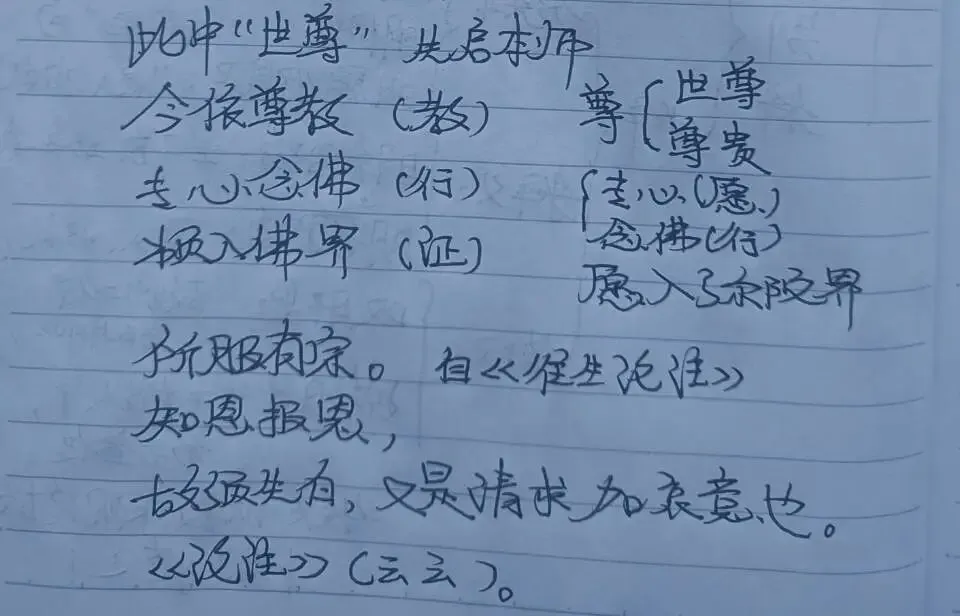 此中“世尊”先启本师
今依尊教（教） 尊{世尊 尊贵
专心念佛（行） {专心（愿）
念佛（行）
求愿入佛界（证）
愿入弥陀界
所服有宗。 自《往生论注》
知恩报恩，
故须先启，又是请求加哀意也。
《论注》（云云）。